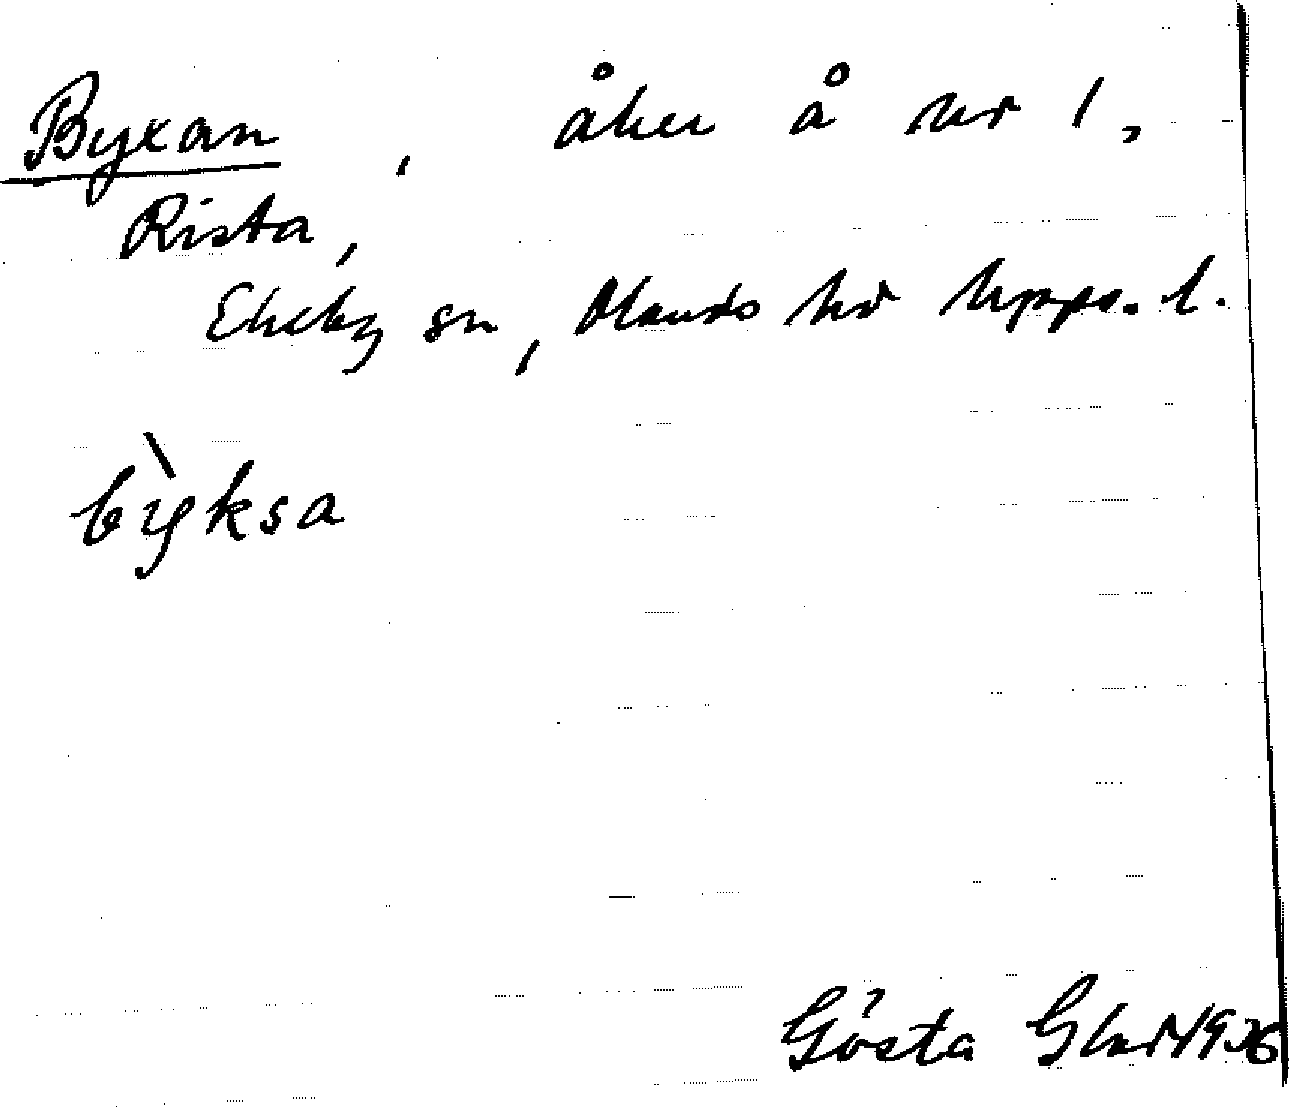 Byxan, åker å nr 1,
Rista,
Ekeby sn, Olands hd Upps. l.
bỳksa
Gösta